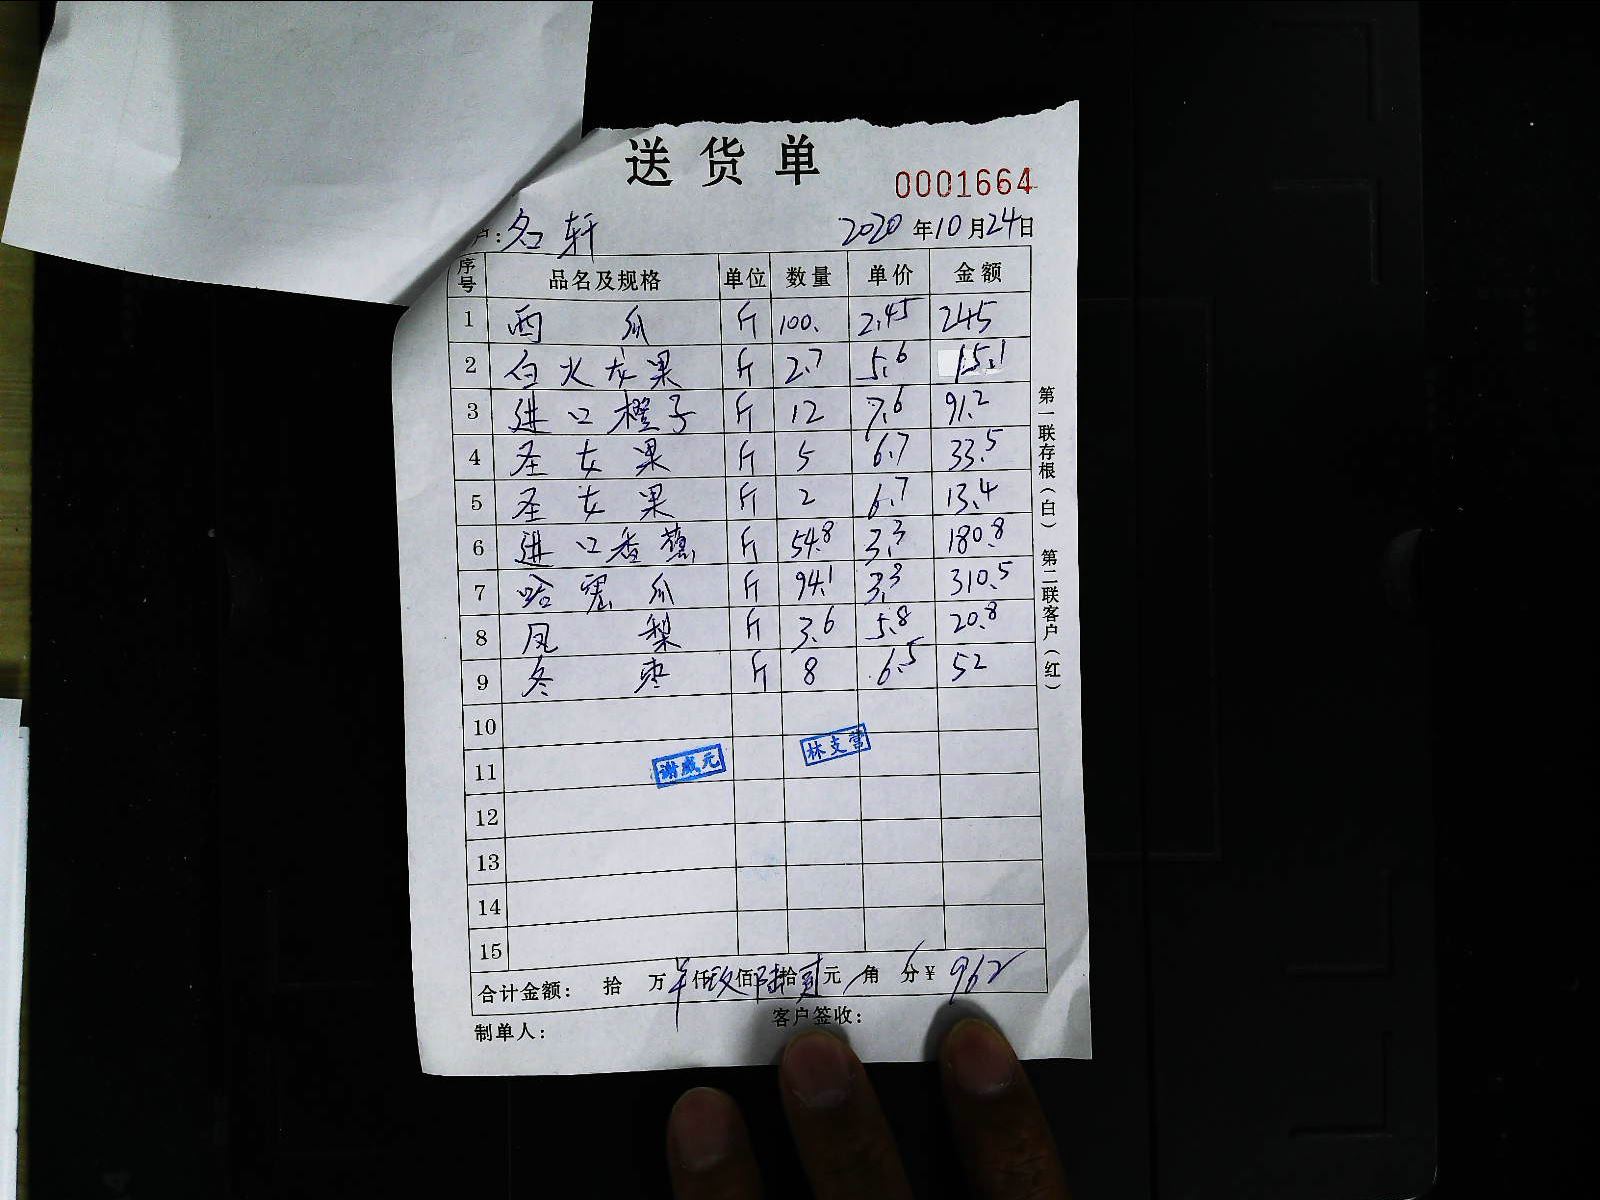 送货单
0001664
户：名轩 2020年10月24日
序号 品名及规格 单位 数量 单价 金额
1 西瓜 斤 100. 2.45 245
2 白火龙果 斤 2.7 5.6 15.1
3 进口橙子 斤 12 7.6 91.2
4 圣女果 斤 5 6.7 33.5
5 圣女果 斤 2 6.7 13.4
6 进口香蕉 斤 54.8 3.3 180.8
7 哈密瓜 斤 94.1 3.3 310.5
8 凤梨 斤 3.6 5.8 20.8
9 冬枣 斤 8 6.5 52
10
11 谢威元 林支营
12
13
14
15
合计金额： 拾 万 仟玖佰陆拾贰元 角 分¥ 962
制单人： 客户签收：
第一联存根（白） 第二联客户（红）